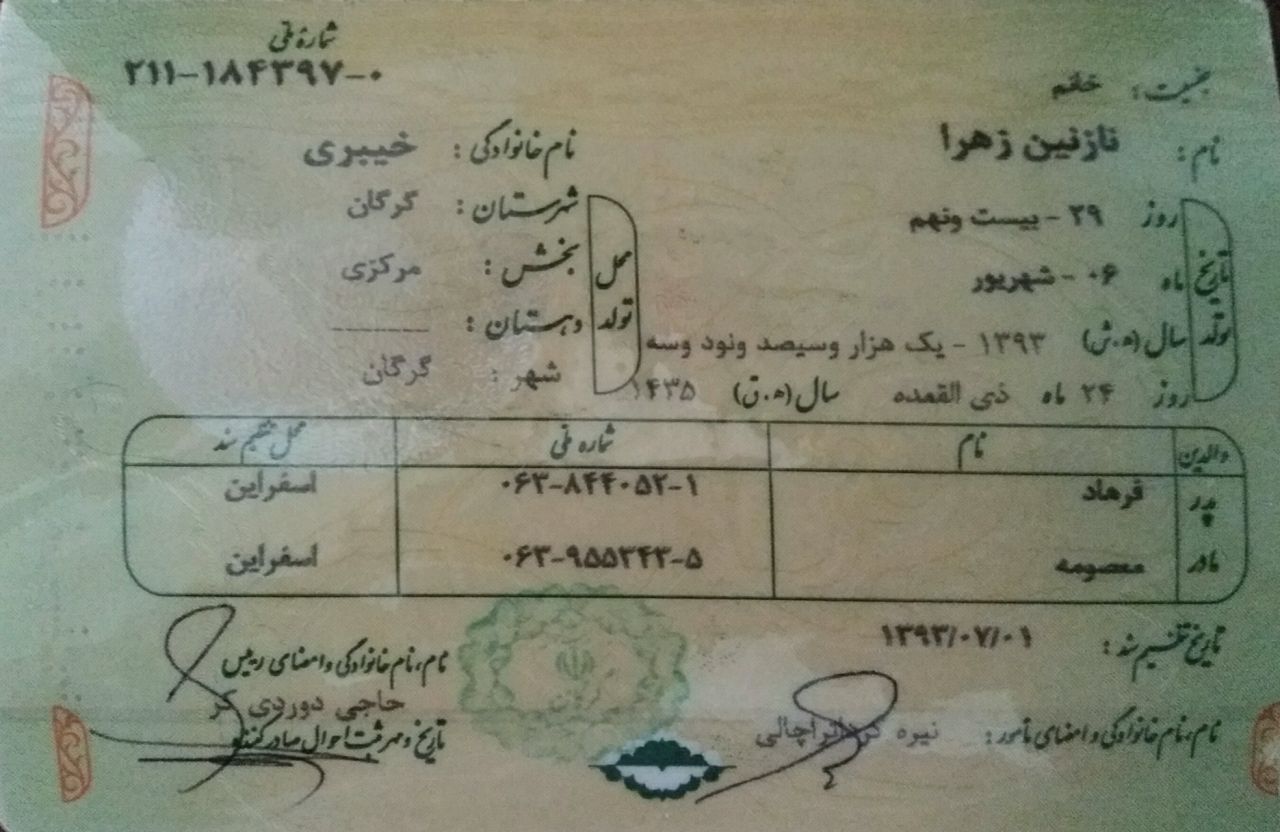 شماره ملی
۲۱۱-۱۸۴۳۹۷-۰
جنسیت: خانم
نام: نازنین زهرا
نام خانوادگی: خیبری
تاریخ تولد
روز ۲۹ - بیست ونهم
ماه ۰۶ - شهریور
سال (ه.ش) ۱۳۹۳ - یک هزار وسیصد ونود وسه
روز ۲۴ ماه ذی القعده سال (ه.ق) ۱۴۳۵
محل تولد
شهرستان: گرگان
بخش: مرکزی
دهستان: --------
شهر: گرگان
والدین نام شماره ملی محل تنظیم سند
پدر فرهاد ۰۶۳-۸۴۴۰۵۲-۱ اسفراین
مادر معصومه ۰۶۳-۹۵۵۲۴۳-۵ اسفراین
تاریخ تنظیم سند: ۱۳۹۳/۰۷/۰۱
نام، نام خانوادگی و امضای مامور: نیره
نام، نام خانوادگی و امضای رییس
حاجی دوردی کر
تاریخ و مهر ثبت احوال صادر کننده